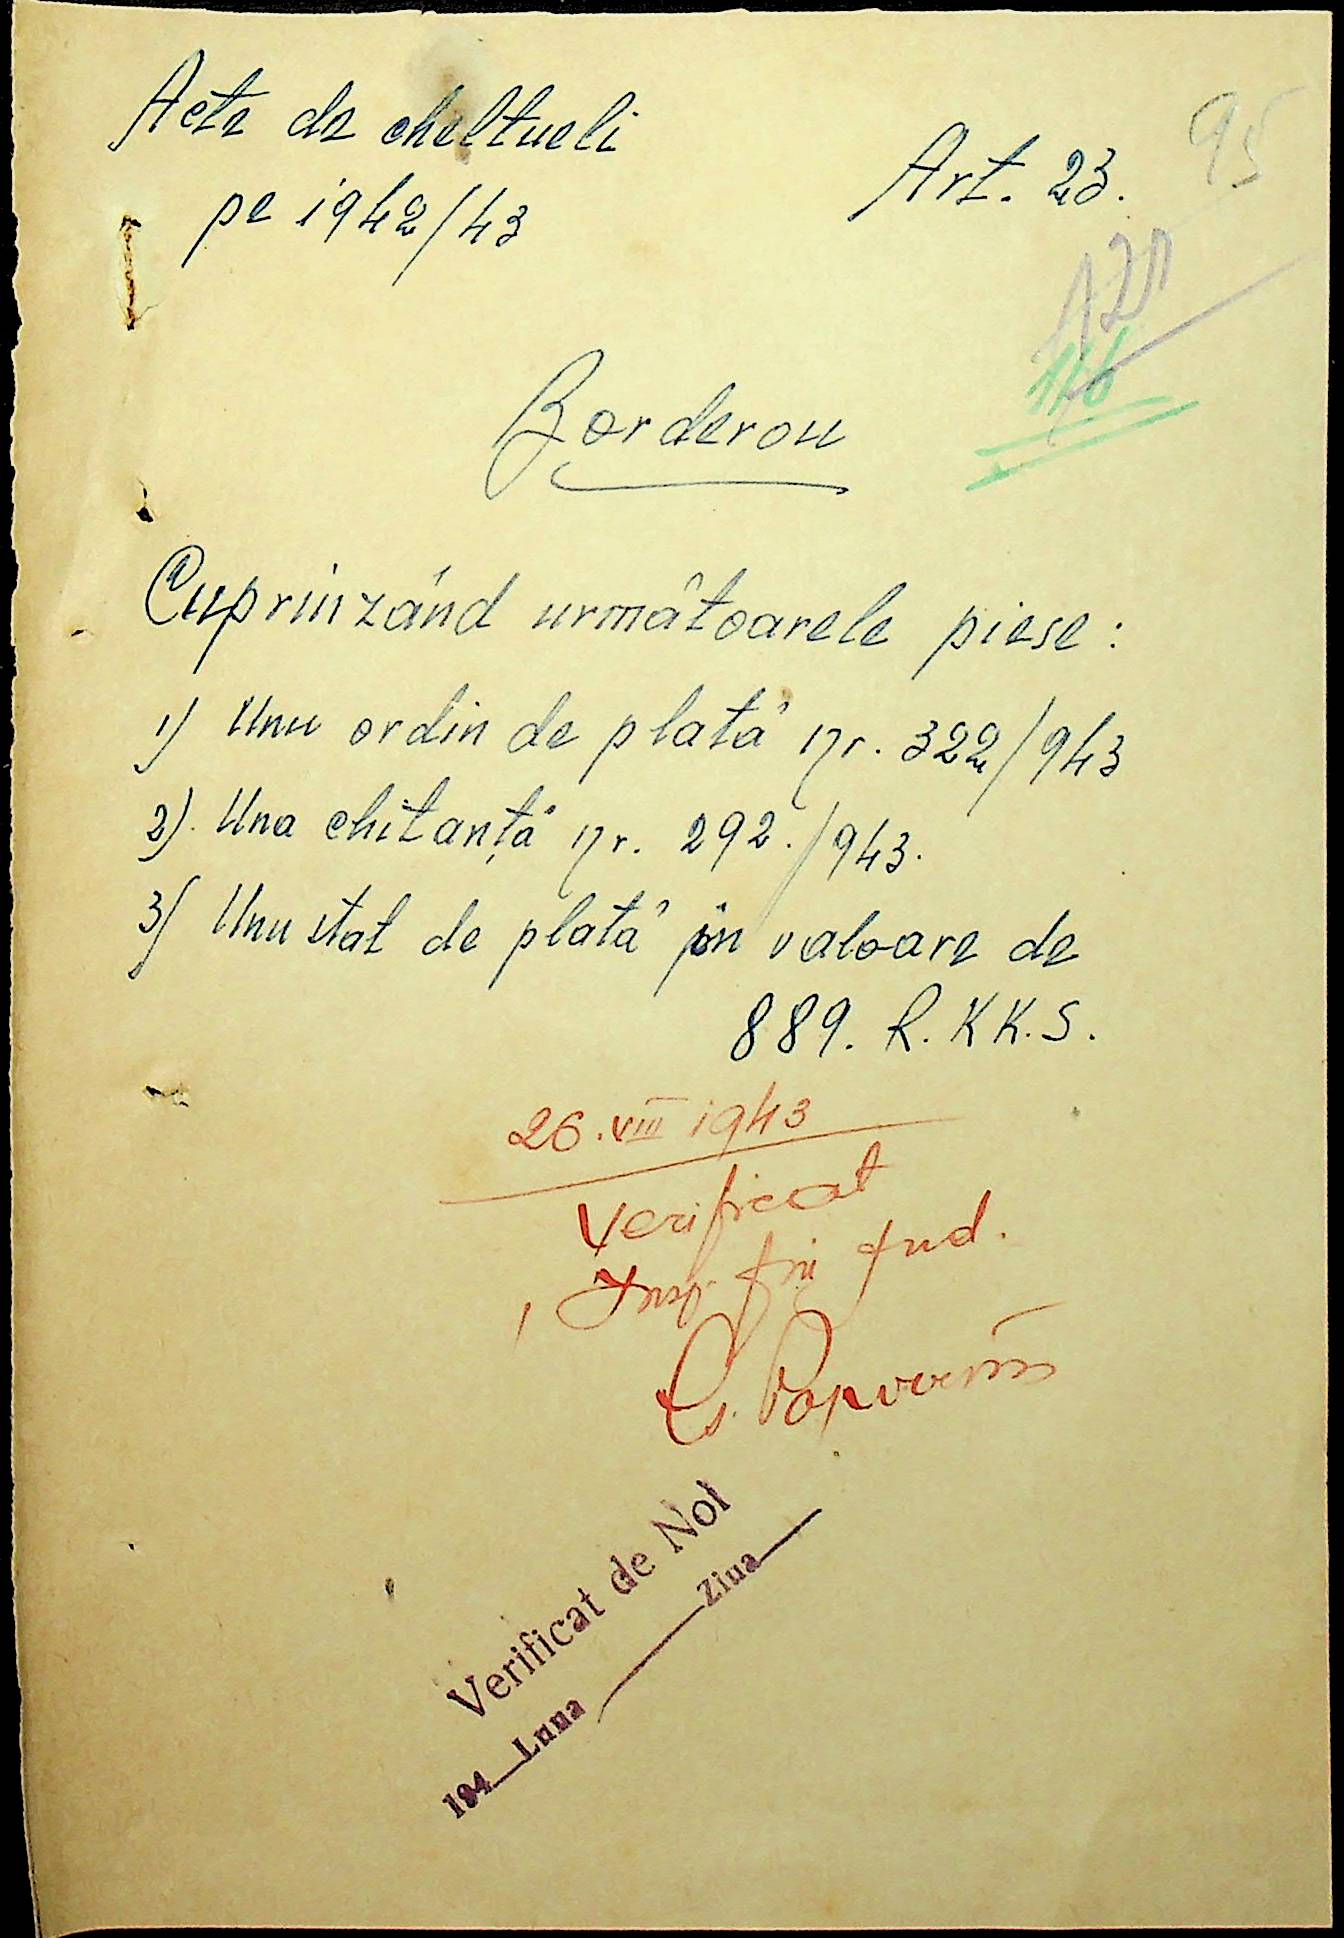 Acte de cheltueli
pe 1942/43
Art. 23.
95
116
Borderou
Cuprinzând următoarele piese:
1) Unu ordin de plată nr. 322/943
2). Una chitanță nr. 292./943.
3) Unu stat de plată în valoare de
889. R.KK.S.
26.VIII 1943
Verificat
Insp. fin Jud.
Verificat de NoI
194 Luna Ziua